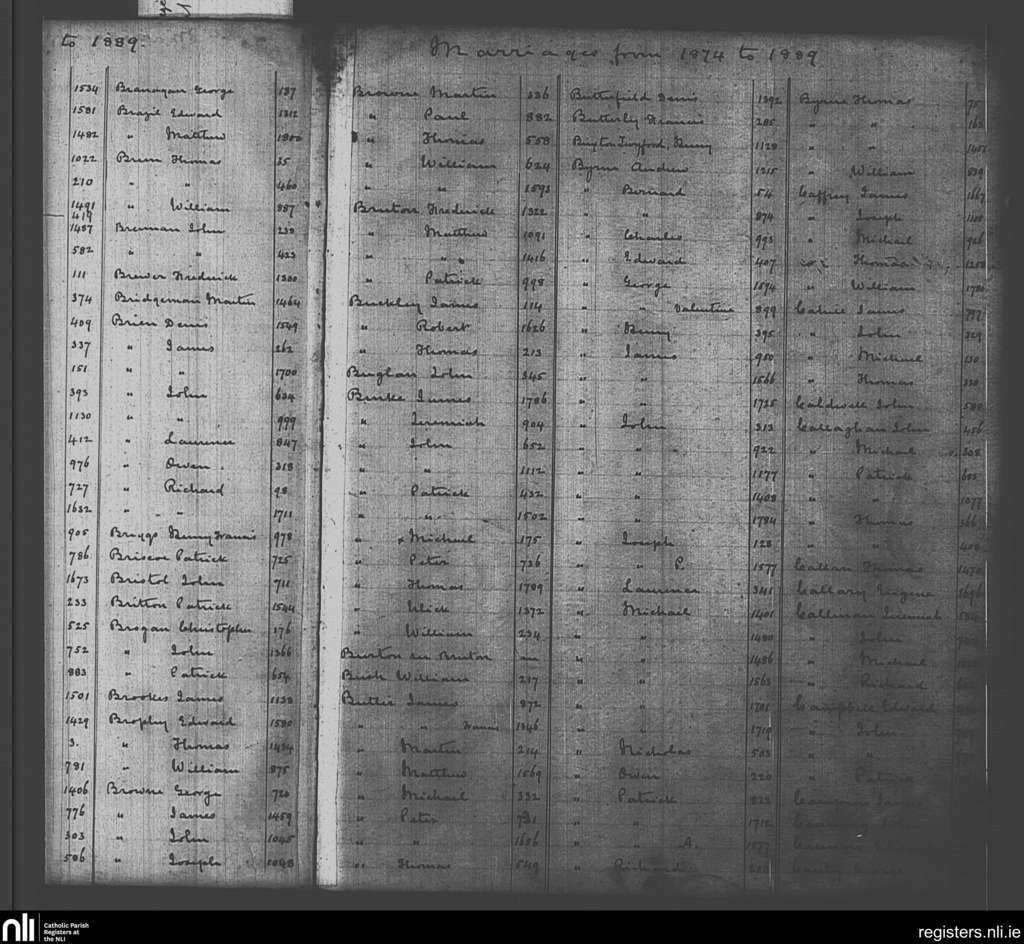 to 1889.
Marriages from 1874 to 1889
1534
1581
1482
1022
210
1491
419
1487
582
111
374
409
337
151
393
1130
412
976
727
1632
905
786
1673
233
525
752
883
1501
1429
3.
791
1406
776
303
506
Branagan George 137
Brazil Edward 1312
" Matthew 1800
Breen Thomas 35
" " 460
" William 887
Brennan John 230
" " 423
Brewer Frederick 1300
Bridgeman Martin 1464
Brien Denis 1549
" James 262
" " 1700
" John 634
" " 999
" Laurence 847
" Owen 318
" Richard 98
" " 1711
Briggs Henry Francis 978
Briscoe Patrick 725
Bristol John 711
Britton Patrick 1544
Brogan Christopher 176
" John 1366
" Patrick 654
Brookes James 1133
Brophy Edward 1530
" Thomas 1434
" William 875
Browne George 720
" James 1459
" John 1045
" Joseph 1048
Browne Martin 336
" Paul 882
" Thomas 558
" William 624
" " 1593
Bruton Frederick 1322
" Matthew 1091
" " 1416
" Patrick 998
Buckley James 114
" Robert 1626
" Thomas 213
Buglan John 345
Burke James 1786
" Jeremiah 904
" John 652
" " 1112
" Patrick 432
" " 1502
" Michael 175
" Peter 736
" Thomas 1709
" Ulick 1372
" William 234
Burton see Bruton
Bush William 217
Butler James 872
" " Francis 1346
" Martin 214
" Matthew 1569
" Michael 332
" Peter 731
" " 1656
" Thomas 549
Butterfield Denis 1392
Butterly Francis 205
Buxton Twyford, Henry 1128
Byrne Andrew 1215
" Bernard 54
" " 874
" Charles 993
" Edward 407
" George 1594
" " Valentine 899
" Henry 395
" James 950
" " 1566
" " 1735
" John 313
" " 922
" " 1177
" " 1408
" " 1784
" Joseph 128
" " P. 1577
" Laurence 341
" Michael 1401
" " 1480
" " 1486
" " 1563
" " 1701
" " 1719
" Nicholas 503
" Owen 220
" Patrick 823
" " 1712
" " A.
" Richard
Byrne Thomas 75
" "
" "
" William 839
Caffrey James 1667
" Joseph
" Michael 926
" Thomas
" William
Cahill James
" John 329
" Michael 130
" Thomas
Caldwell John
Callaghan John 456
" Michael 308
" Patrick
" " 1077
" Thomas
" "
Callan Thomas
Callary Eugene
Callinan Jeremiah
" John
" Michael
" Richard
Campbell Edward
" John
" "
" Patrick
nli
Catholic Parish
Registers at
the NLI
registers.nli.ie